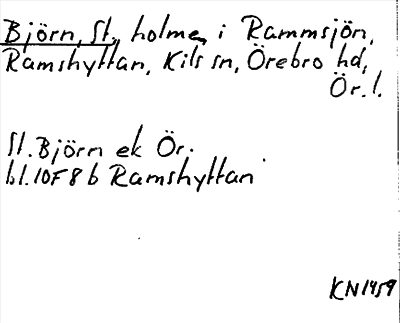 Björn, St. holme i Rammsjön,
Ramshyttan, Kils sn, Örebro hd,
Ör. l.
St. Björn ek Ör.
bl. 10F 8 b Ramshyttan
KN1959